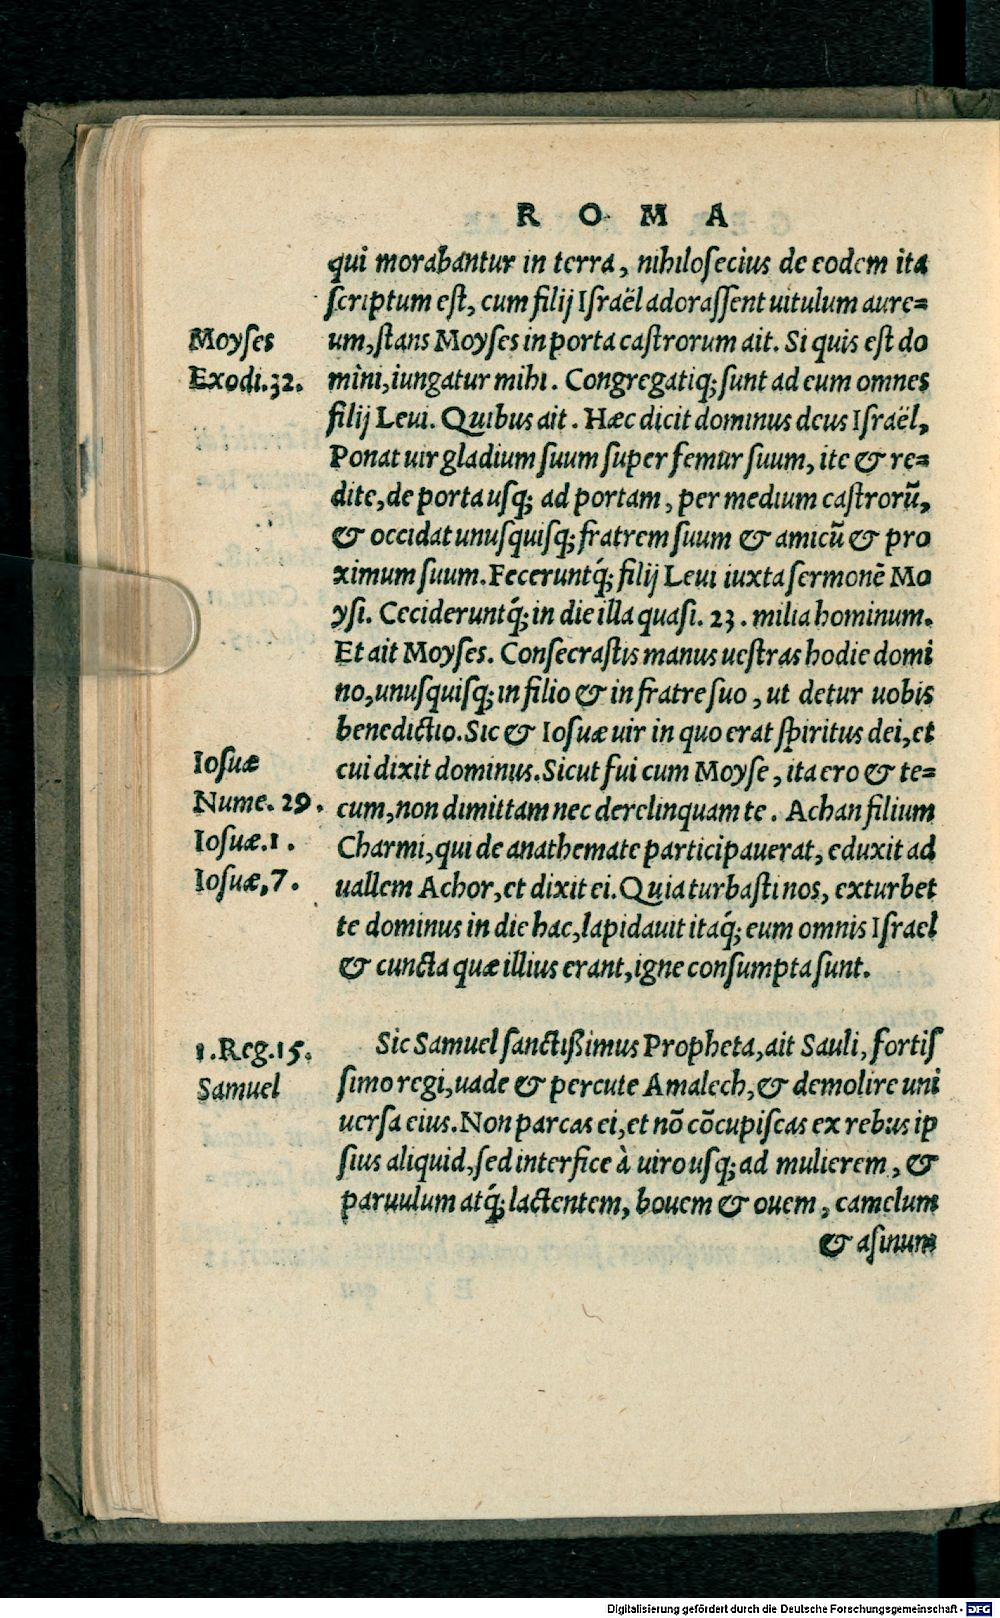 R O M A
qui morabantur in terra, nihiloſecius de eodem ita
ſcriptum eſt, cum filij Iſraël adoraſſent uitulum aure=
Moyſes
um, ſtans Moyſes in porta caſtrorum ait. Si quis eſt do
Exodi.32.
mini, iungatur mihi. Congregatiq; ſunt ad eum omnes
filij Leui. Quibus ait. Hæc dicit dominus deus Iſraël,
Ponat uir gladium ſuum ſuper femur ſuum, ite & re=
dite, de porta uſq; ad portam, per medium caſtrorũ,
& occidat unuſquiſq; fratrem ſuum & amicũ & pro
ximum ſuum. Feceruntq́; filij Leui iuxta ſermonẽ Mo
yſi. Cecideruntq́; in die illa quaſi. 23. milia hominum.
Et ait Moyſes. Conſecraſtis manus ueſtras hodie domi
no, unuſquiſq; in filio & in fratre ſuo, ut detur uobis
benedictio. Sic & Ioſuæ uir in quo erat ſpiritus dei, et
Ioſuæ
cui dixit dominus. Sicut fui cum Moyſe, ita ero & te=
Nume. 29.
cum, non dimittam nec derelinquam te. Achan filium
Ioſuæ.1.
Charmi, qui de anathemate participauerat, eduxit ad
Ioſuæ,7.
uallem Achor, et dixit ei. Quia turbaſti nos, exturbet
te dominus in die hac, lapidauit itaq́; eum omnis Iſrael
& cuncta quæ illius erant, igne conſumpta ſunt.
1.Reg.15.
Sic Samuel ſanctißimus Propheta, ait Sauli, fortiſ
Samuel
ſimo regi, uade & percute Amalech, & demolire uni
uerſa eius. Non parcas ei, et nõ cõcupiſcas ex rebus ip
ſius aliquid, ſed interfice à uiro uſq; ad mulierem, &
paruulum atq́; lactentem, bouem & ouem, camelum
& aſinum
Digitalisierung gefördert durch die Deutsche Forschungsgemeinschaft - DFG